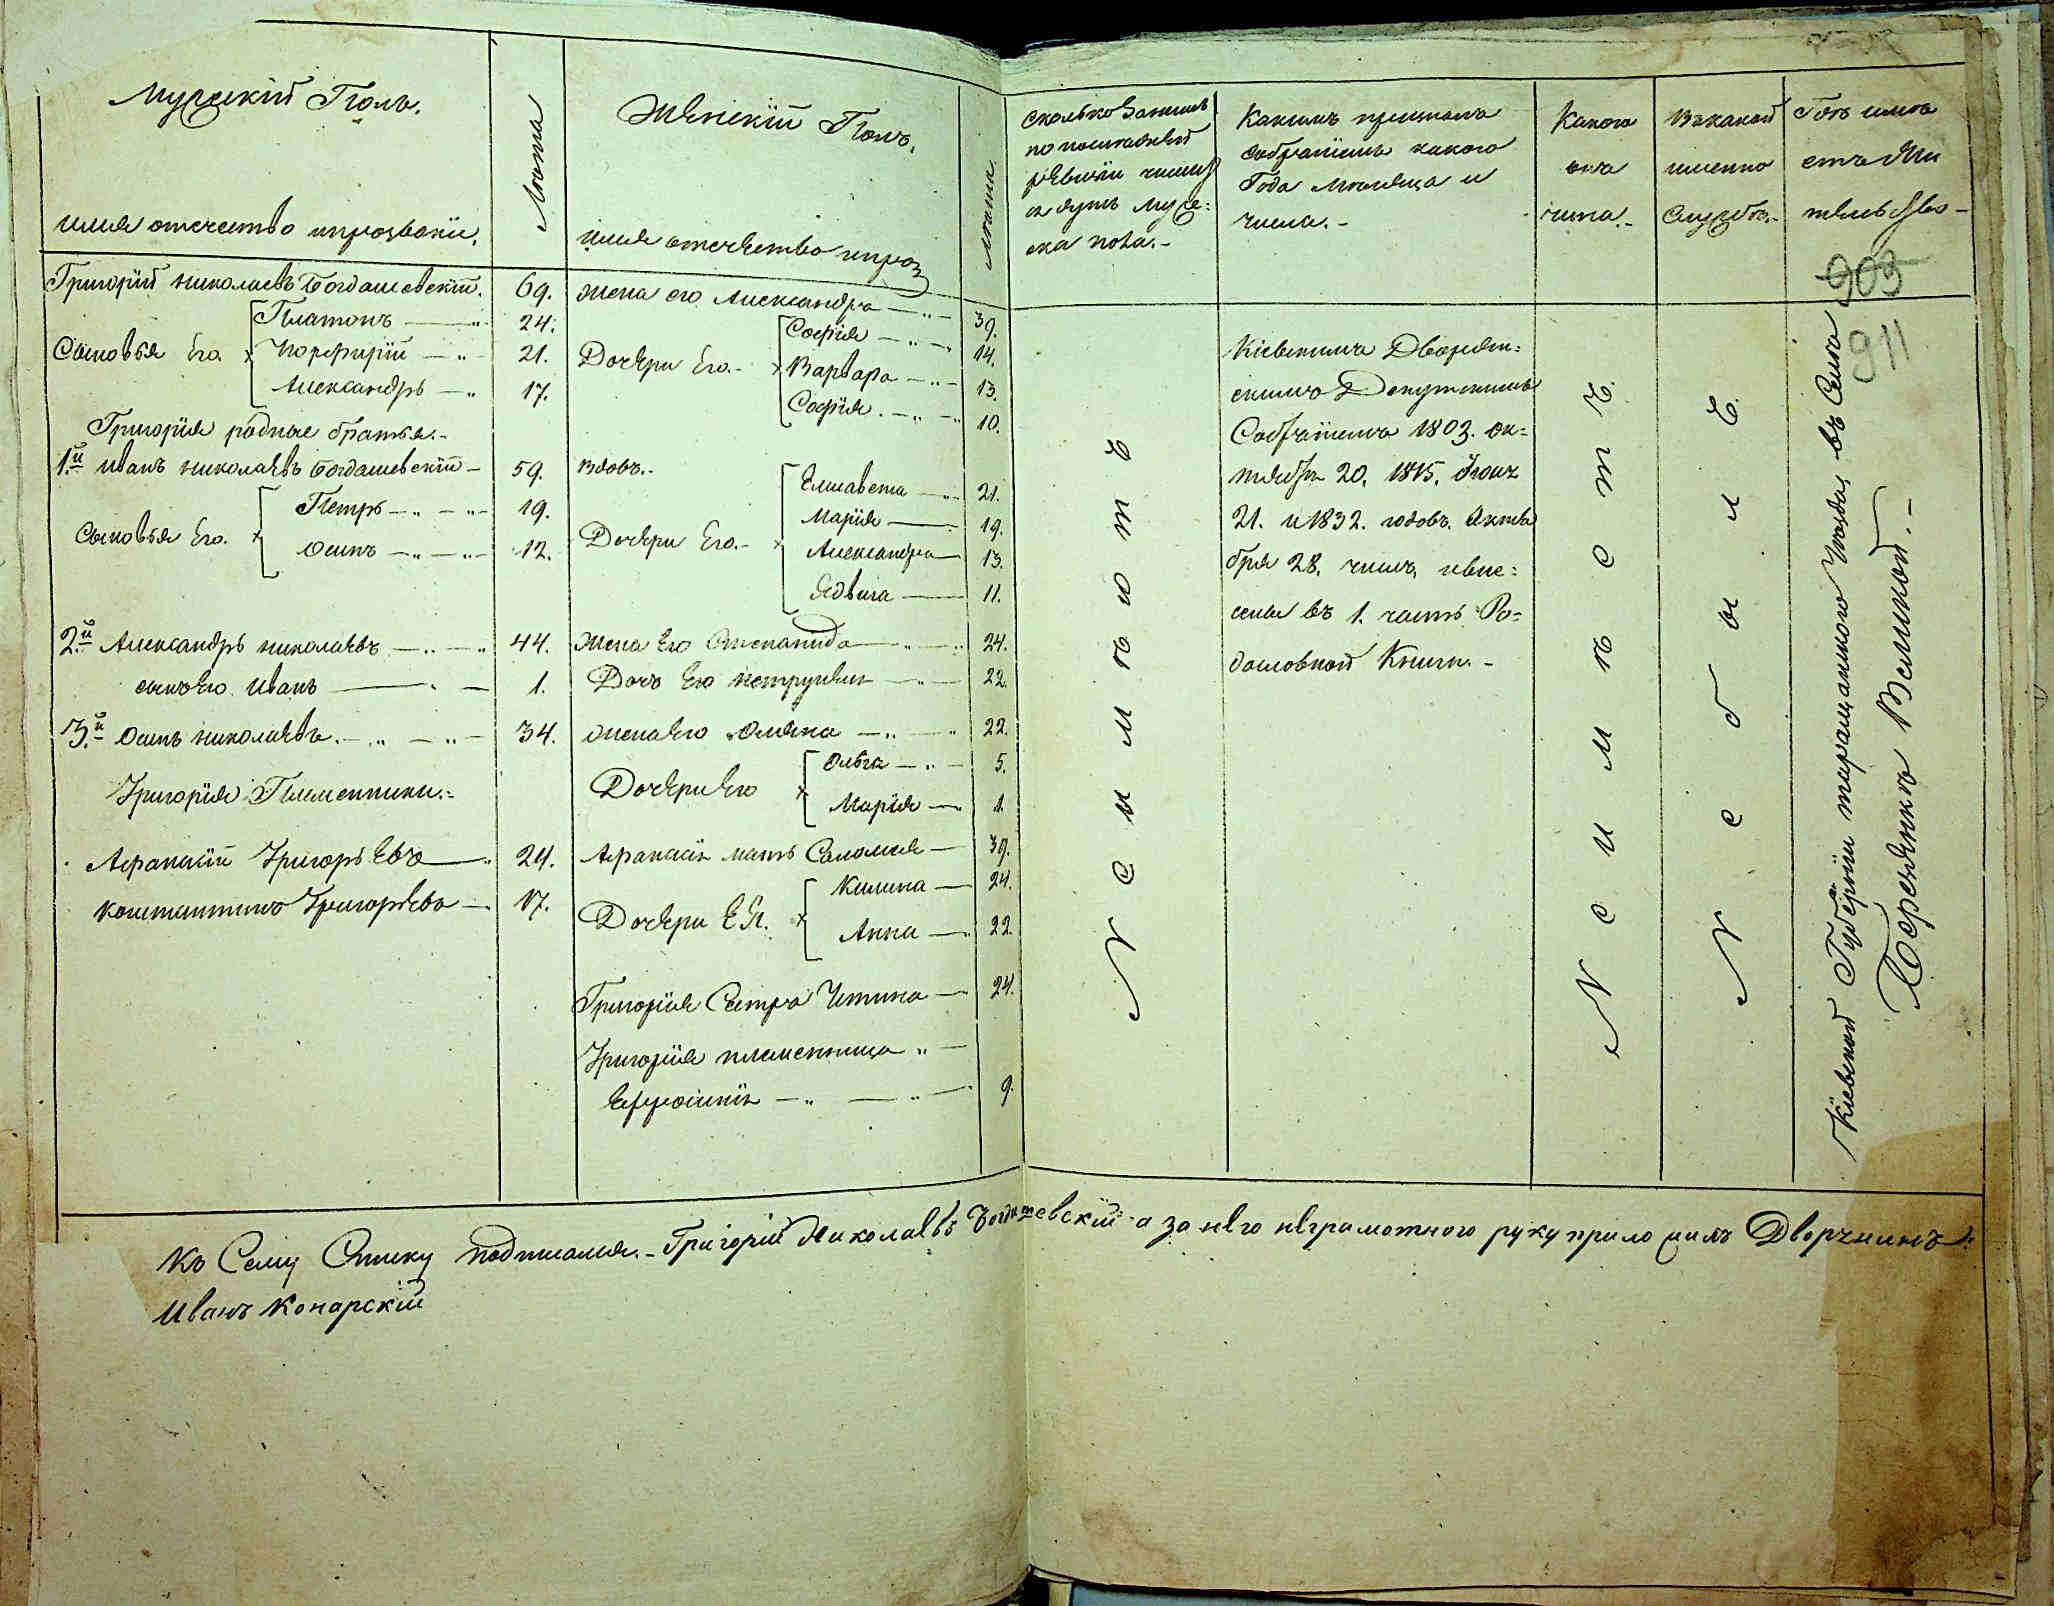 Мужескій Полъ.
имя отечество ипрозваніе.
Лѣта
Женскій Полъ.
имя отечество ипроз
Лѣта
сколько Запис
по последней
ревизіи числ
ск душъ муже:
ска пола.-
Какимъ
собраніемъ какого
Года мѣсяца и
числа.-
Какого
она
чина.-
Въкакой
именно
Службѣ.-
Гдѣ имѣ
етъ жи
тельство-
903
911
Григорій николаевъ Богдашевскій.
69.
жена его Александра
39.
Сыновья Его.
Платонъ
24.
Порфирій
21.
Александръ
17.
Дочери Его.-
Софія
14.
Варвара
13.
Софія.
10.
Григорія родные братья.-
1.й иванъ николаевъ Богдашевскій-
59.
вдовъ.-
Сыновья Его.
Петръ
19.
Осипъ
12.
Дочери Его.-
Елисавета
21.
Марія
19.
Александра
13.
Ядвига
11.
2.й Александръ николаевъ
44.
жена Его Степанида
24.
сынъ Его Иванъ
1.
Дочь Его
22.
3.й Осипъ николаевъ.-
34.
жена Его
22.
Дочери Его
Ольга
5.
Марія
1.
Григорія Племенники.-
Афанасій Григорьевъ
24.
Афанасія мать Саломея
39.
Константинъ Григорьевъ
17.
Дочери Ея.
Килина
24.
Анна
22.
Григорія Сестра Устина
24.
Григорія племенница
Ефросинія
9.
Неимѣютъ
Кіевскимъ Дворян:
скимъ Депутатскимъ
Собраніемъ 1803. Ок:
тября 20, 1815. Іюня
21. и 1832. годовъ. Октя
бря 28. числъ, ивне:
сены въ 1. часть Ро-
дословной Книги.-
Неимѣетъ
Небылъ
Кіевской Губерніи таращанскаго Уезда, въ Селѣ
Березянкѣ Великой.-
Къ Сему Списку подписался.- Григорій Николаевъ Богдашевскій а за него неграмотного руку приложилъ Дворянинъ
Иванъ Конарскій